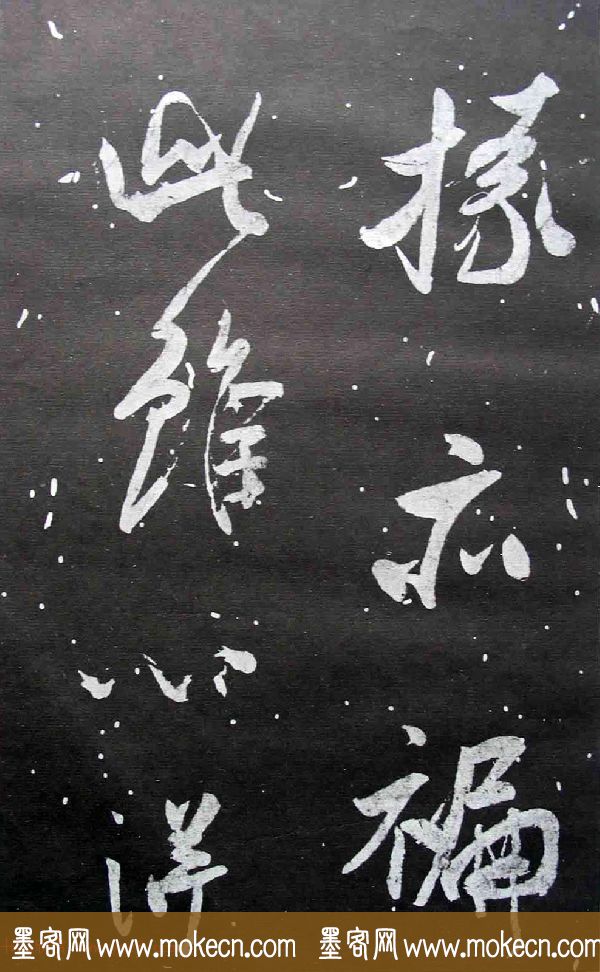 掾亦褊
此雖心得
墨客网 www.mokecn.com 墨客网 www.mokecn.com